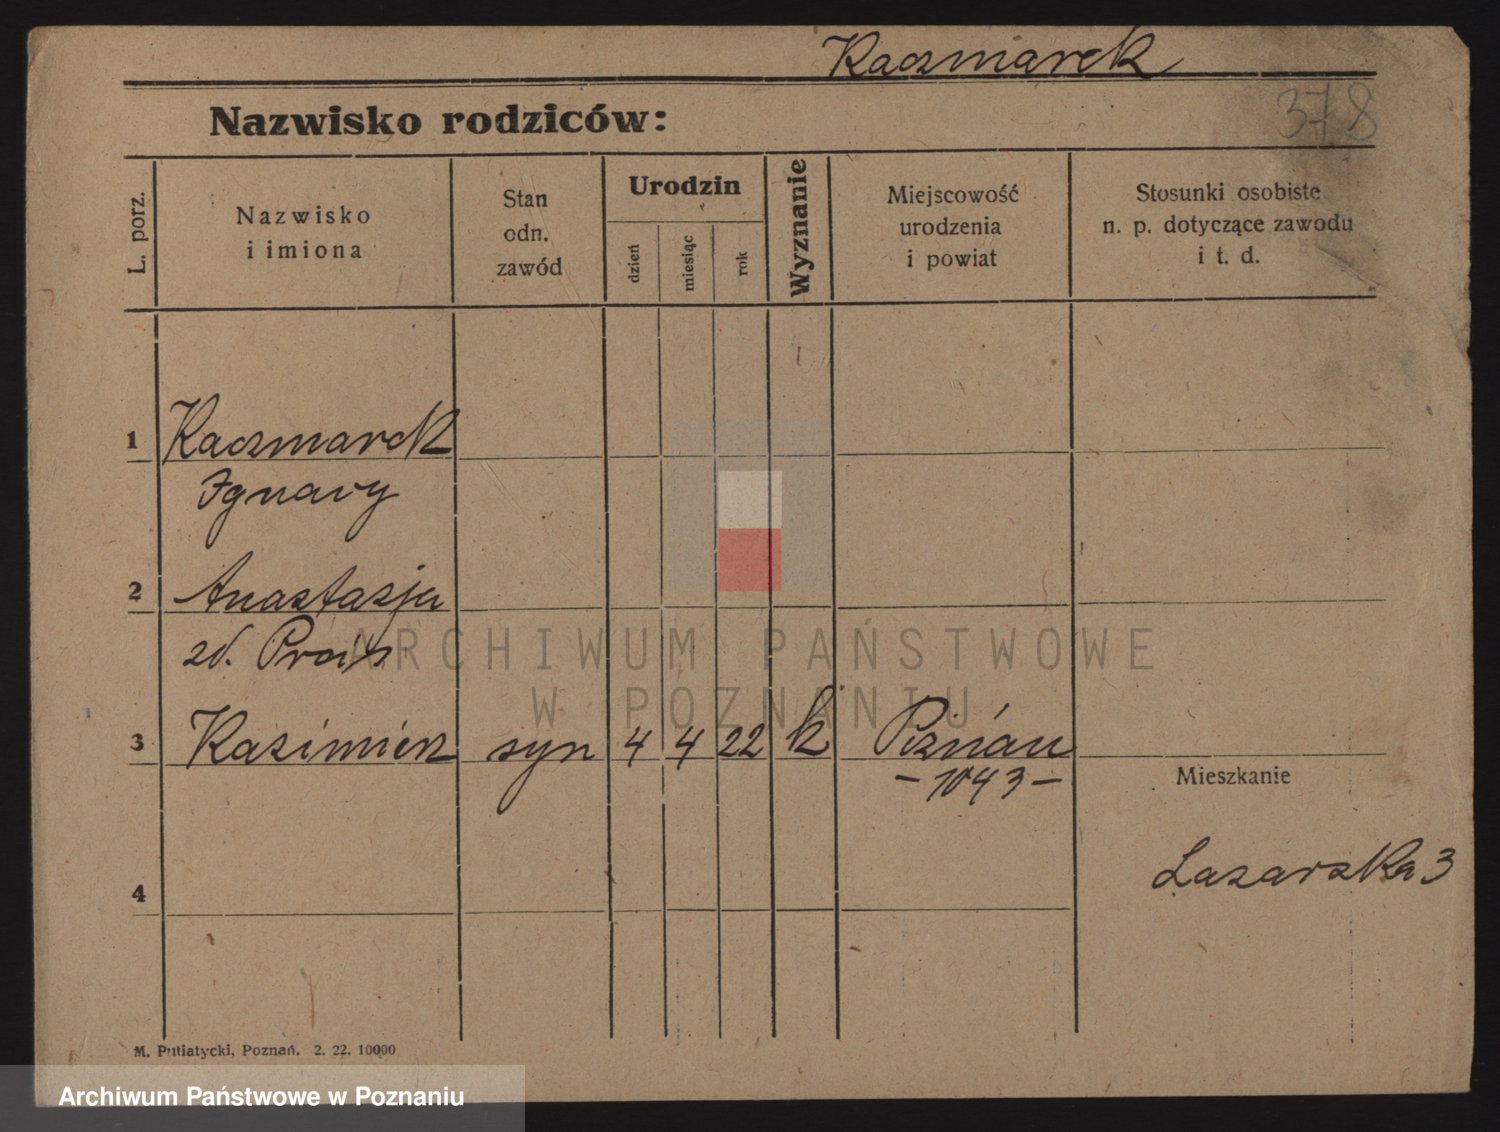 Kaczmarek
378
Nazwisko rodziców:
L. porz.
Nazwisko
i imiona
Stan
odn.
zawód
Urodzin
dzień
miesiąc
rok
Wyznanie
Miejscowość
urodzenia
i powiat
Stosunki osobiste
n. p. dotyczące zawodu
i t. d.
1 Kaczmarek
Ignacy
2 Anastazja
zd.
3 Kazimierz syn 4 4 22 k Poznań
- 1043 -
Mieszkanie
Łazarska 3
4
M. Putiatycki, Poznań. 2. 22. 10000
ARCHIWUM PAŃSTWOWE
W POZNANIU
Archiwum Państwowe w Poznaniu